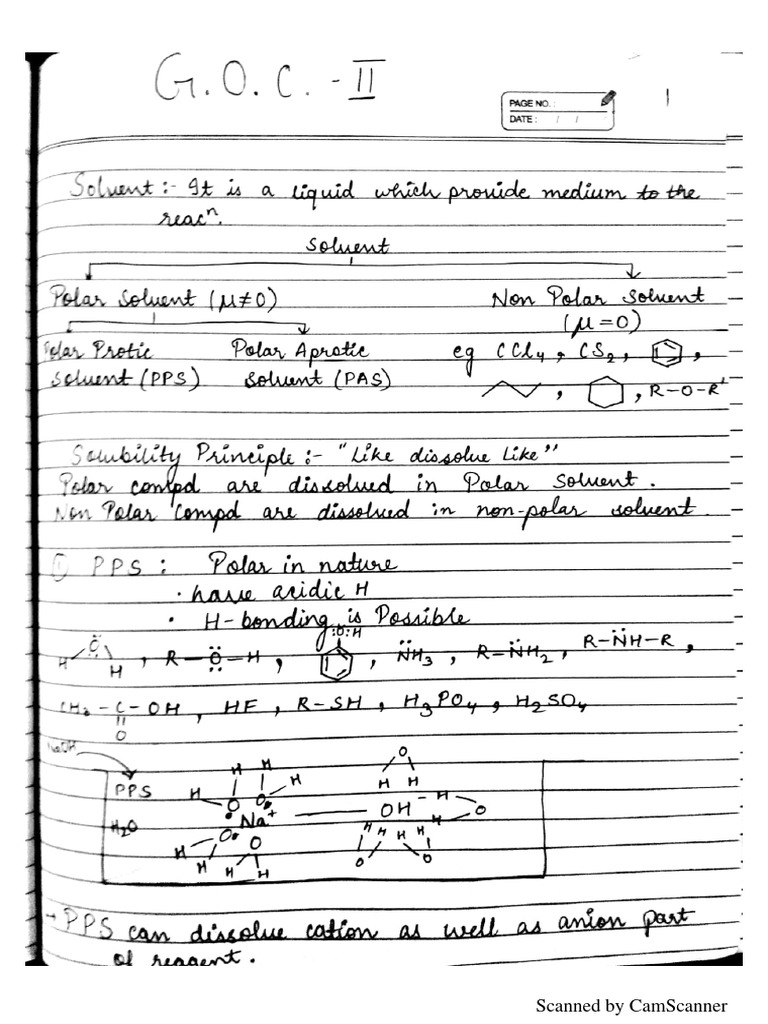 G.O.C. - II
PAGE NO.:
DATE: / /
1
Solvent :- It is a liquid which provide medium to the
reacⁿ.
Solvent
Polar Solvent (μ≠0) Non Polar Solvent
(μ=0)
Polar Protic Polar Aprotic eg CCl₄, CS₂, ,
Solvent (PPS) Solvent (PAS) , , R-O-R'
Solubility Principle :- "Like dissolve Like"
Polar compd are dissolved in Polar Solvent.
Non Polar Compd are dissolved in non-polar solvent.
① PPS : Polar in nature
• have acidic H
• H-bonding is Possible
H O H , R-O-H , O H , NH₃ , R-NH₂ , R-NH-R ,
CH₃-C-OH , HF , R-SH , H₃PO₄ , H₂SO₄
O
NaOH
PPS H H H H O O H H O
H₂O Na⁺ OH H H O
O O H H H H H H H H O O
→ PPS can dissolve cation as well as anion part
of reagent.
Scanned by CamScanner